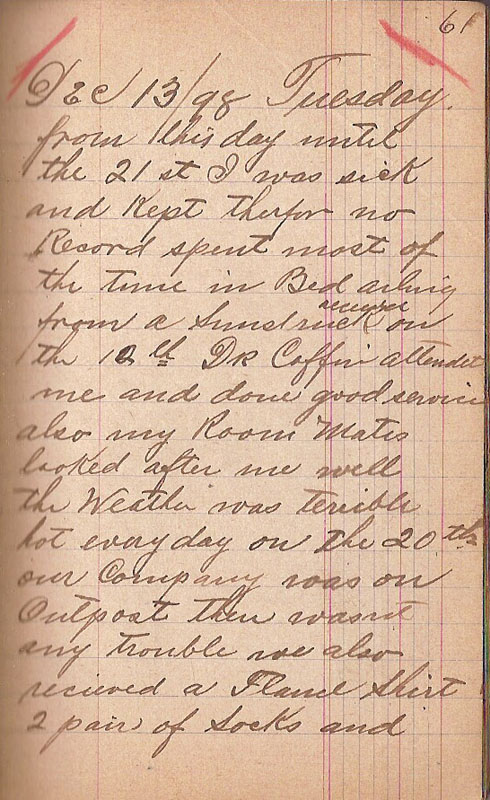 61
Dec 13/98 Tuesday.
from this day until
the 21 st I was sick
and Kept therfor no
Record spent most of
the time in Bed
recieved
from a Sunstruck on
the 12th DR Coffin attendet
me and done good service
also my Room Mates
looked after me well
the Weather was terible
hot every day on the 20th
our Company was on
Outpost then wasnt
any trouble we also
recieved a Flanel Shirt
2 pair of Socks and